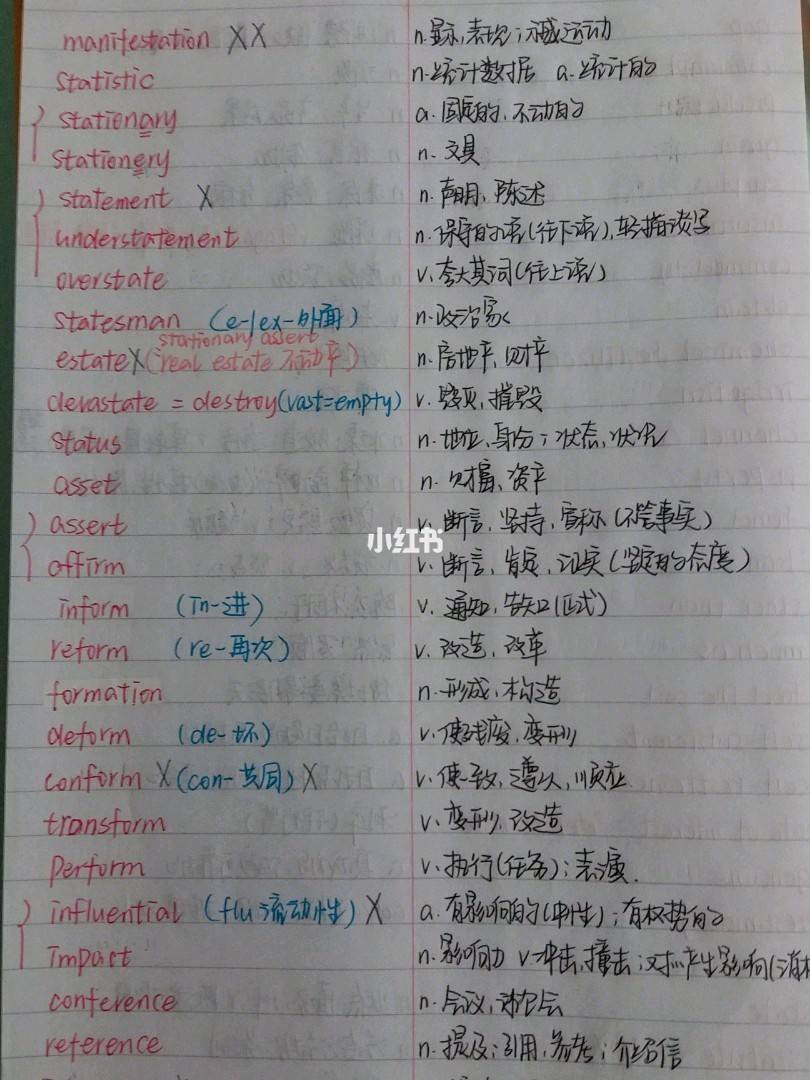 manifestation XX n.显示,表现;示威运动
statistic n.统计数据 a.统计的
stationary a.固定的,不动的
stationery n.文具
statement X n.声明,陈述
understatement n.保守的话(往下语),轻描淡写
overstate v.夸大其词(往上语)
statesman (e-/ex-外面) n.政治家
stationary assert
estate X (real estate 不动产) n.房地产,财产
devastate = destroy(vast=empty) v.毁灭,摧毁
status n.地位,身份;状态,状况
asset n.财富,资产
assert v.断言,坚持,宣称(不管事实)
小红书
affirm v.断言,肯定,证实(坚定的态度)
inform (in-进) v.通知,告知(正式)
reform (re-再次) v.改造,改革
formation n.形成,构造
deform (de-坏) v.使残废,变形
conform X (con-共同) X v.使一致,遵从,顺应
transform v.变形,改造
perform v.执行(任务);表演.
influential (flu流动性) X a.有影响的(中性);有权势的
impact n.影响力 v.冲击,撞击;对…产生影响(消极
conference n.会议,讨论会
reference n.提及;引用,参考;介绍信